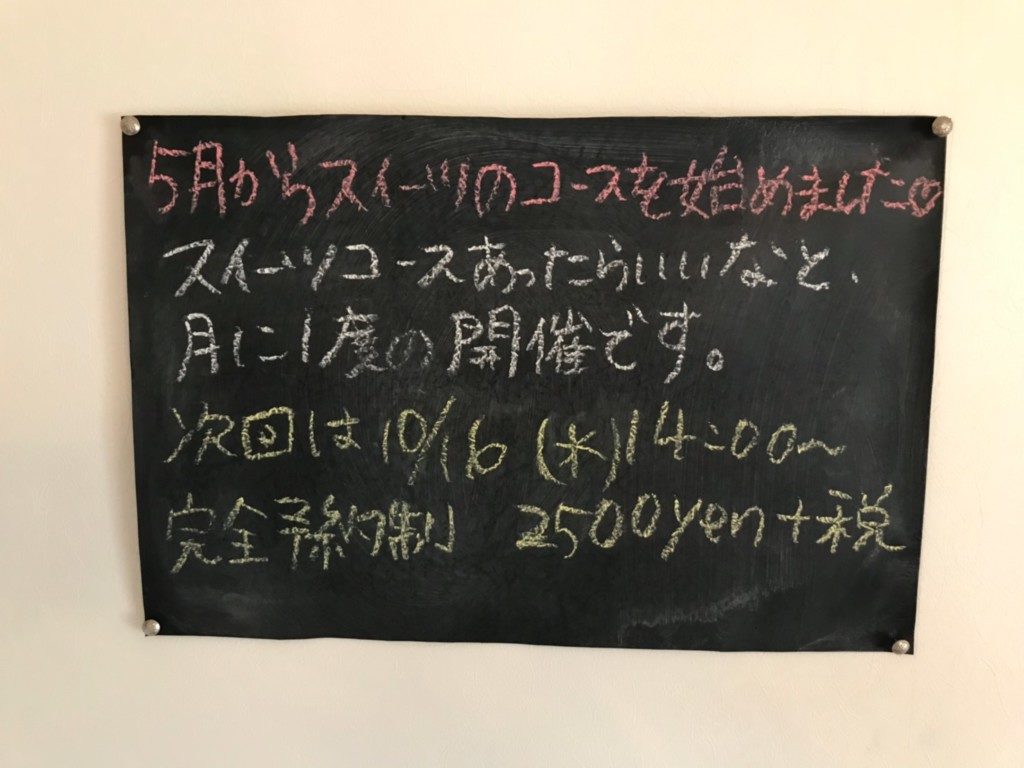 5月からスイーツのコースを始めました♡
スイーツコースあったらいいなと、
月に1度の開催です。
次回は10/16(水)14:00〜
完全予約制 2500yen+税